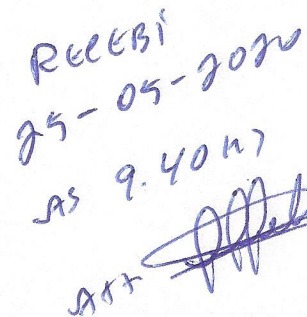 RECEBI
25-05-2020
AS 9.40 hs
Att